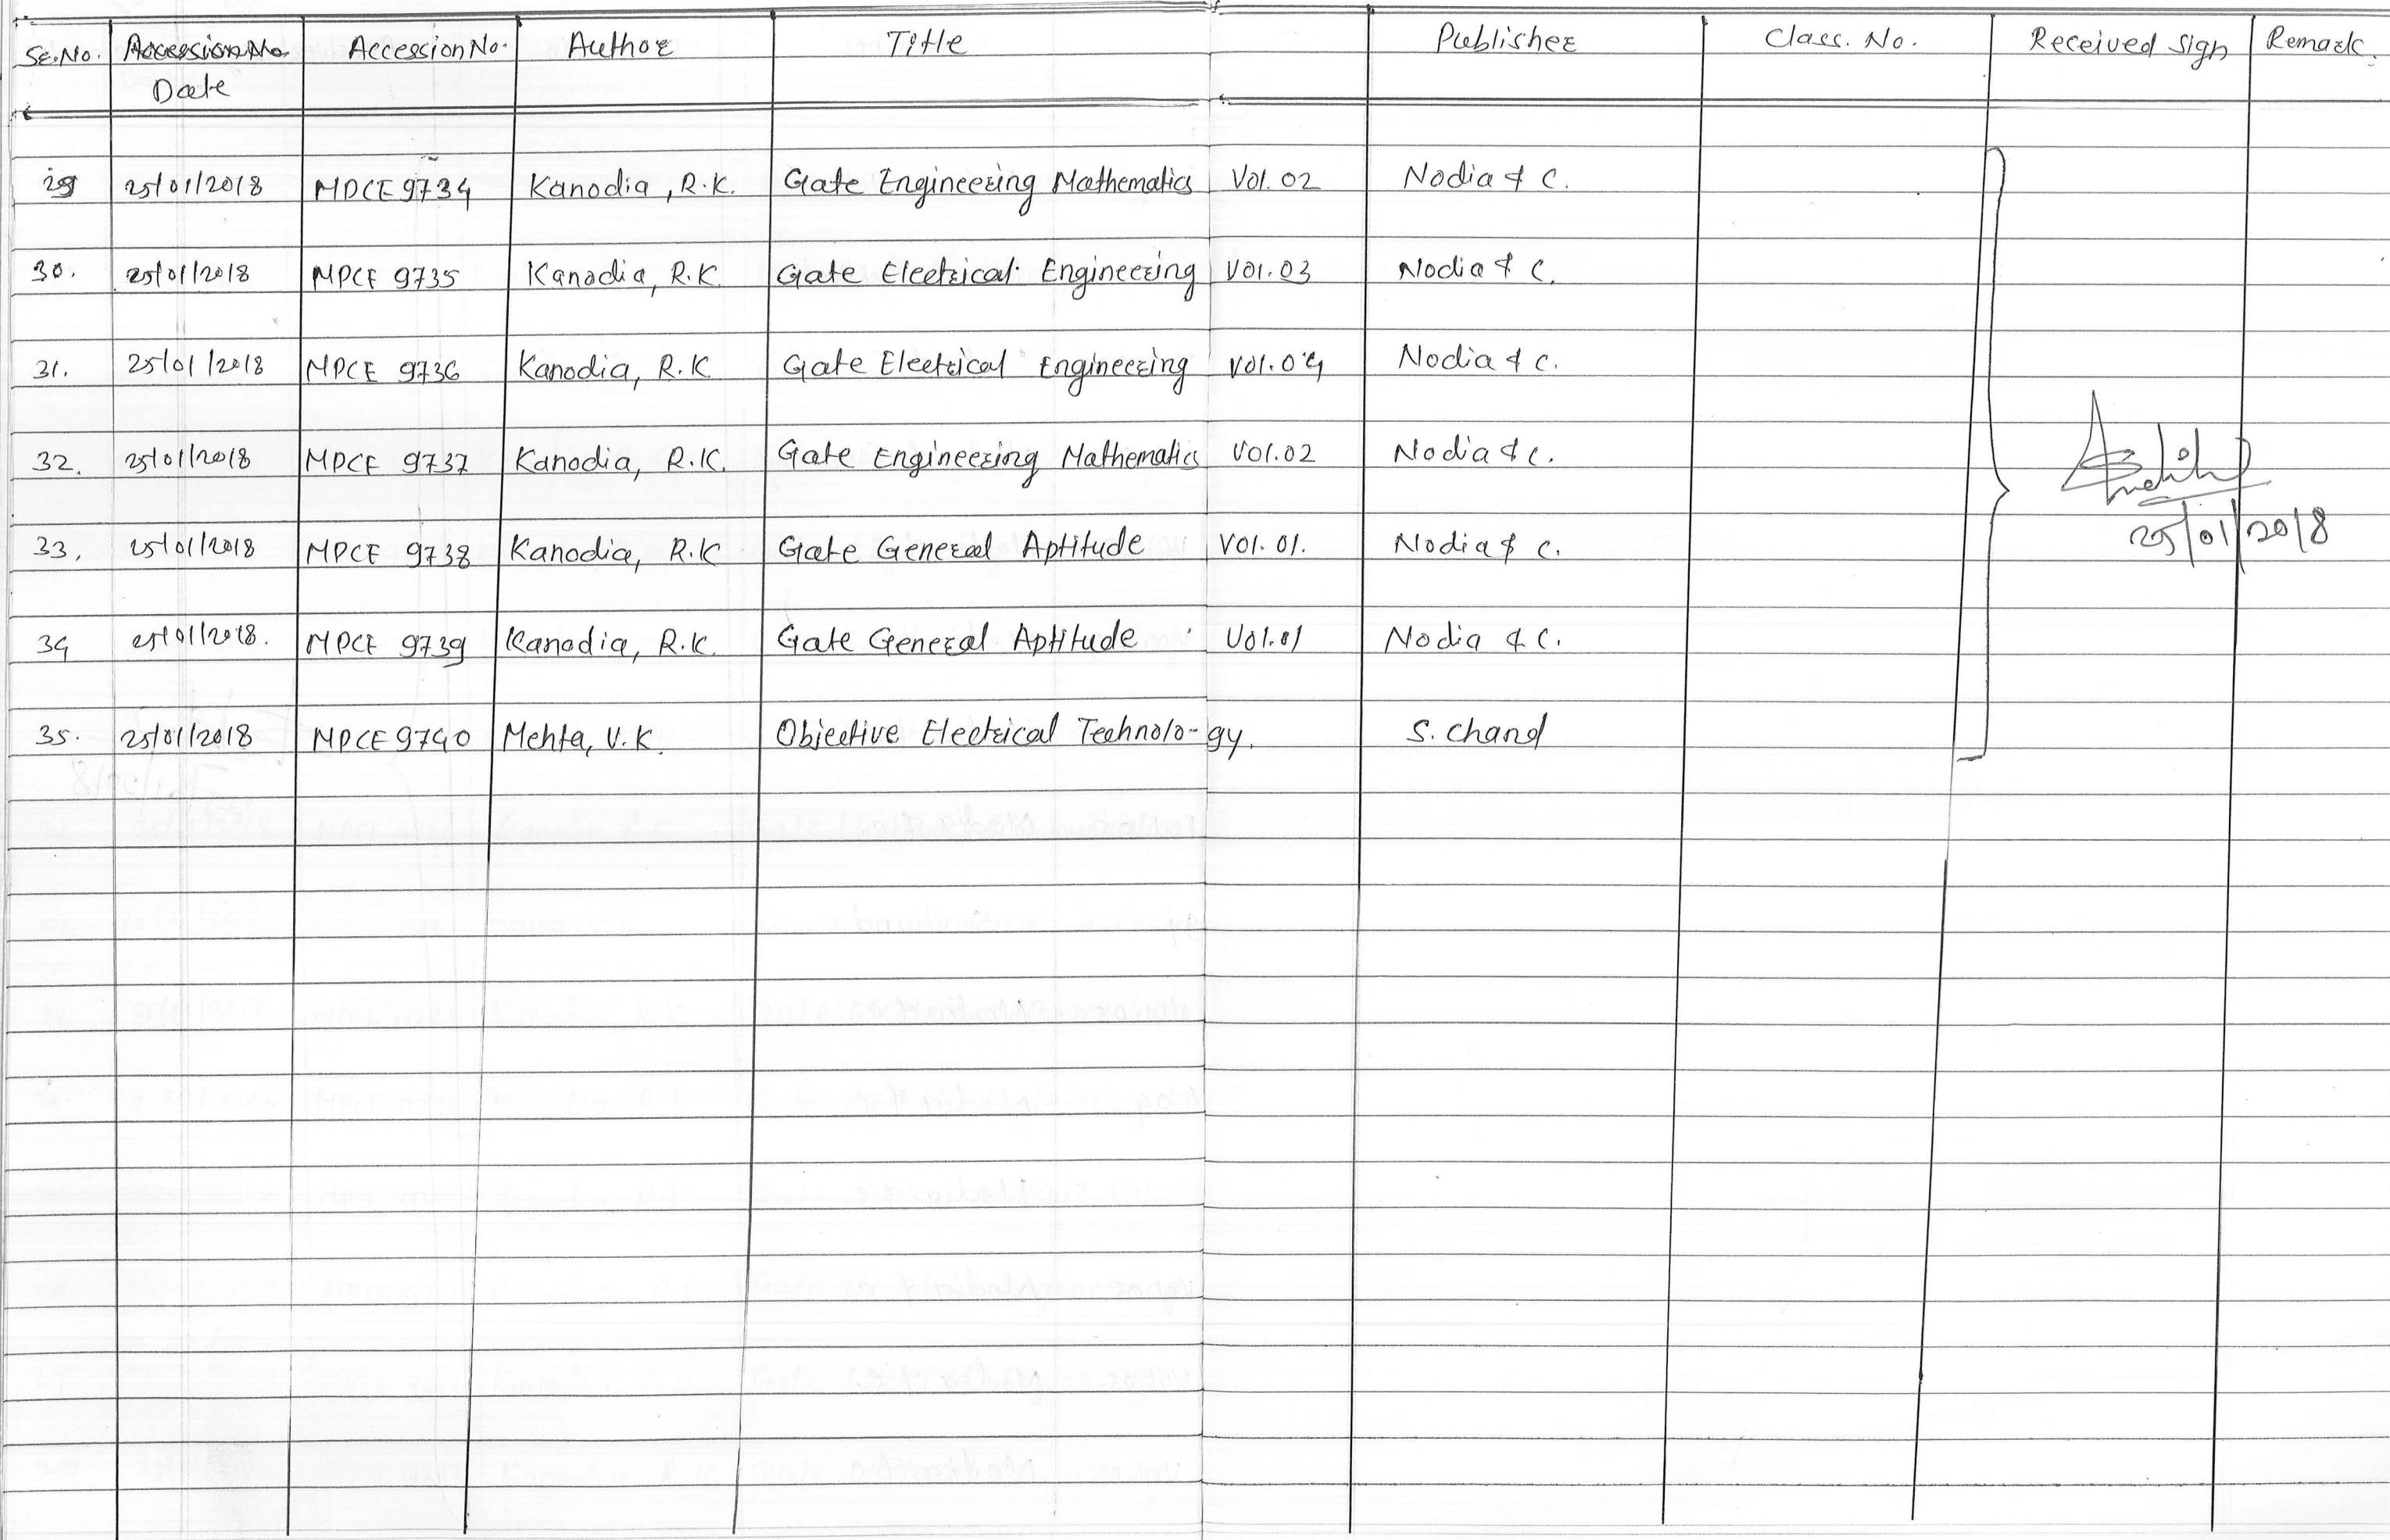 Sr.No. Accession No. Date Accession No. Author Title Publisher Class. No. Received Sign Remark.
29 25/01/2018 MPCE 9734 Kanodia, R.K. Gate Engineering Mathematics Vol. 02 Nodia & C.
30. 25/01/2018 MPCE 9735 Kanodia, R.K. Gate Electrical Engineering Vol. 03 Nodia & C.
31. 25/01/2018 MPCE 9736 Kanodia, R.K Gate Electrical Engineering Vol. 04 Nodia & C.
32. 25/01/2018 MPCE 9737 Kanodia, R.K. Gate Engineering Mathematics Vol. 02 Nodia & C.
33. 25/01/2018 MPCE 9738 Kanodia, R.K Gate General Aptitude Vol. 01. Nodia & C.
34 25/01/2018. MPCE 9739 Kanodia, R.K. Gate General Aptitude Vol. 01 Nodia & C.
35. 25/01/2018 MPCE 9740 Mehta, V.K. Objective Electrical Technolo-gy. S. Chand
25/01/2018